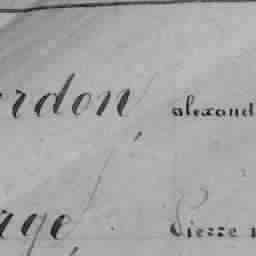 erdon, alexand
rge, Pierre